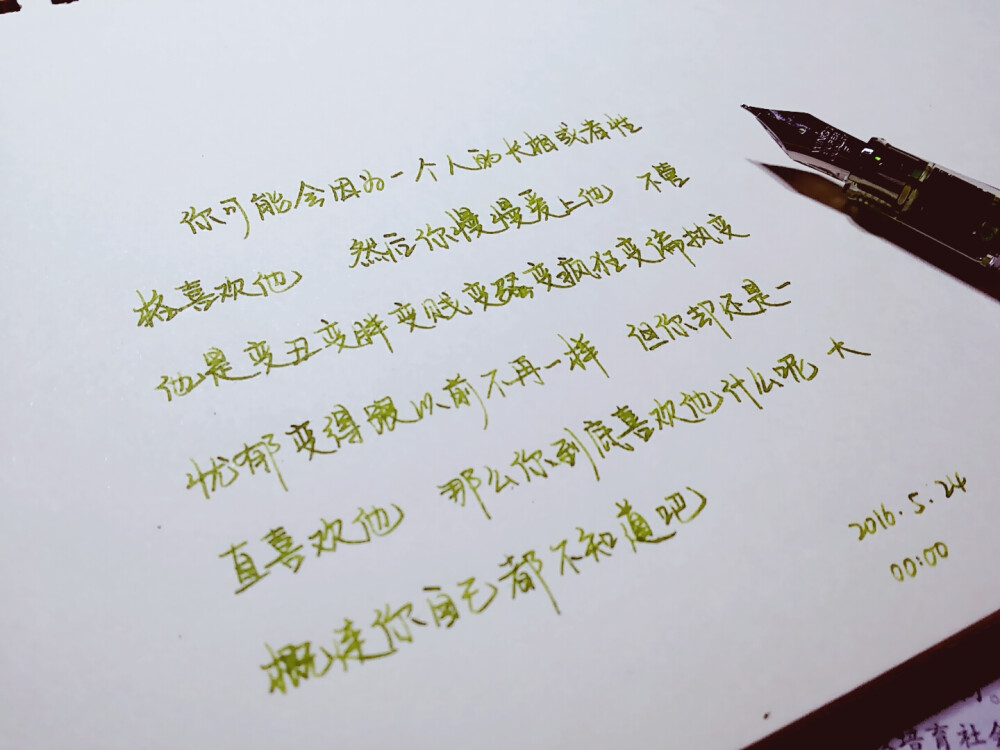 你可能会因为一个人的长相或者性
格喜欢他 然后你慢慢爱上他 不管
他是变丑变胖变贱变骚变疯狂变偏执变
忧郁变得跟以前不再一样 但你却还是一
直喜欢他 那么你到底喜欢他什么呢 大
概连你自己都不知道吧
2016.5.24
00:00
育社会